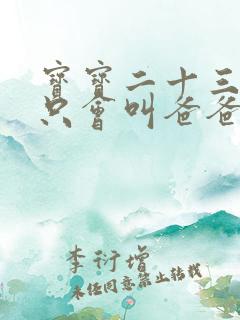 寶寶二十三
只會叫爸爸
李衍增
未經同意禁止轉載